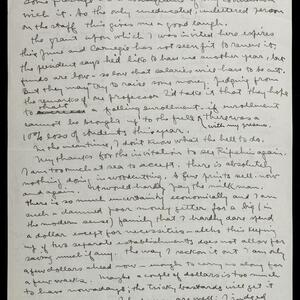 with it. As the only uneducated, unlettered person
on the staff this gives me a good laugh.
The grant upon which I was invited here expires
this June and Carnegie has not seen fit to renew it.
The president says he'd like me another year, but
funds are low - so that salaries will have to be cut.
But they may try to raise my money, judging from
the remarks of one professor I'd take it that they hope
to a falling enrollment. If enrollment
cannot be brought up to the full, there was a
with my greens.
100% loss of students this year.
In the meantime, I don't know what the hell to do.
My thanks for the invitation to see Ripshin again.
I am too much at sea to accept. There is absolutely
nothing doing in woodcutting. A few prints sell now
and again. It would hardly pay the milkman.
There is so much uncertainty economically and I am
such a damned poor money getter for a big (in
the modern sense) family that I hardly dare spend
a dollar except for necessities - also this keeping
up of two separate establishments does not allow for
saving much if any. The way I section it out I am only
a few dollars ahead now - enough to carry us along for
a few weeks. Maybe a couple of dollars is too much
to have nowadays; the tricky bastards will get it